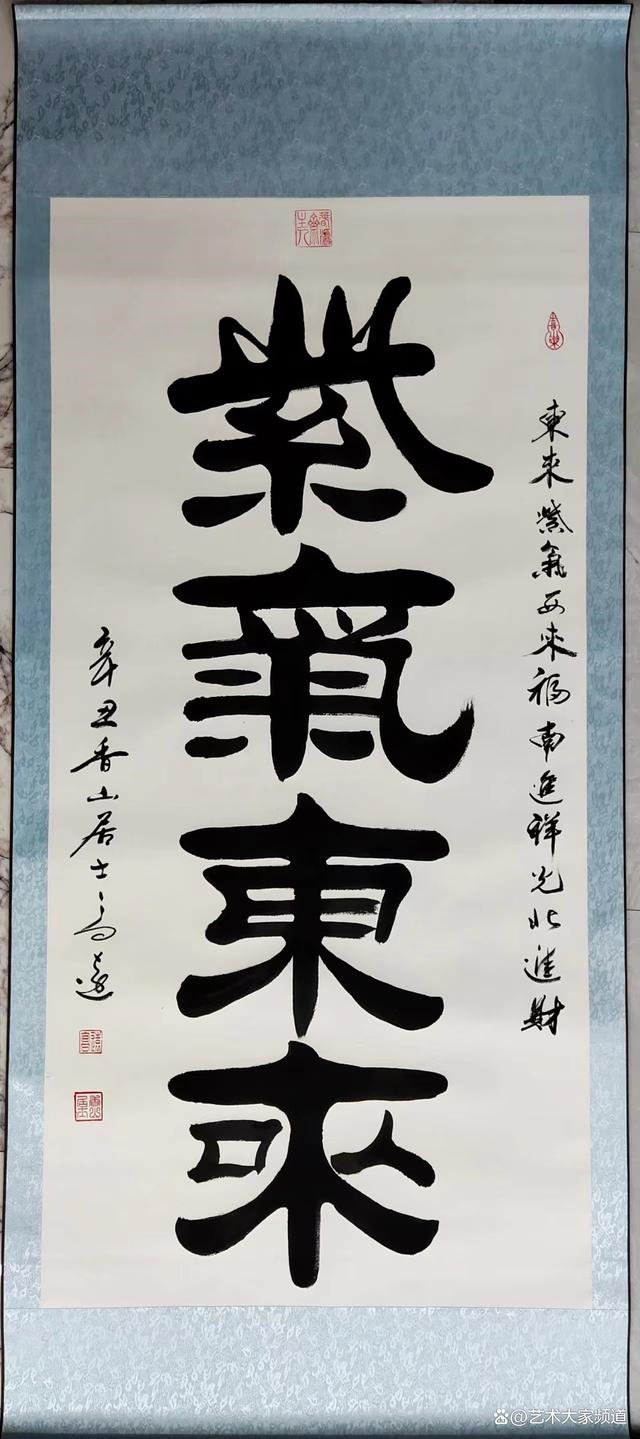 東来紫氣西来福南進祥光北進財
紫氣東來
辛丑香山居士高遠
@艺术大家频道